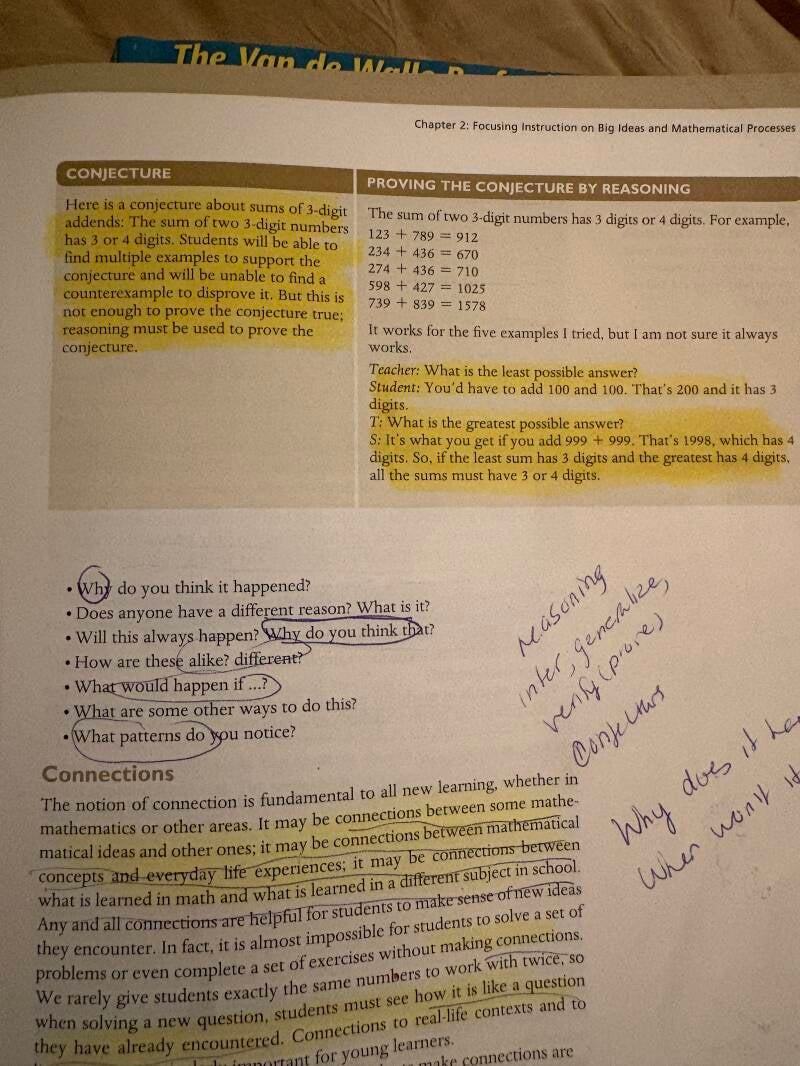 The Van de Walle
Chapter 2: Focusing Instruction on Big Ideas and Mathematical Processes
CONJECTURE
Here is a conjecture about sums of 3-digit
addends: The sum of two 3-digit numbers
has 3 or 4 digits. Students will be able to
find multiple examples to support the
conjecture and will be unable to find a
counterexample to disprove it. But this is
not enough to prove the conjecture true;
reasoning must be used to prove the
conjecture.
PROVING THE CONJECTURE BY REASONING
The sum of two 3-digit numbers has 3 digits or 4 digits. For example,
123 + 789 = 912
234 + 436 = 670
274 + 436 = 710
598 + 427 = 1025
739 + 839 = 1578
It works for the five examples I tried, but I am not sure it always
works.
Teacher: What is the least possible answer?
Student: You'd have to add 100 and 100. That's 200 and it has 3
digits.
T: What is the greatest possible answer?
S: It's what you get if you add 999 + 999. That's 1998, which has 4
digits. So, if the least sum has 3 digits and the greatest has 4 digits,
all the sums must have 3 or 4 digits.
• Why do you think it happened?
• Does anyone have a different reason? What is it?
• Will this always happen? Why do you think that?
• How are these alike? different?
• What would happen if ...?
• What are some other ways to do this?
• What patterns do you notice?
reasoning
inter, generalize,
verify (prove)
Conjectures
Why does it
when won't it
Connections
The notion of connection is fundamental to all new learning, whether in
mathematics or other areas. It may be connections between some mathe-
matical ideas and other ones; it may be connections between mathematical
concepts and everyday life experiences; it may be connections between
what is learned in math and what is learned in a different subject in school.
Any and all connections are helpful for students to make sense of new ideas
they encounter. In fact, it is almost impossible for students to solve a set of
problems or even complete a set of exercises without making connections.
We rarely give students exactly the same numbers to work with twice, so
when solving a new question, students must see how it is like a question
they have already encountered. Connections to real-life contexts and to
important for young learners.
make connections are